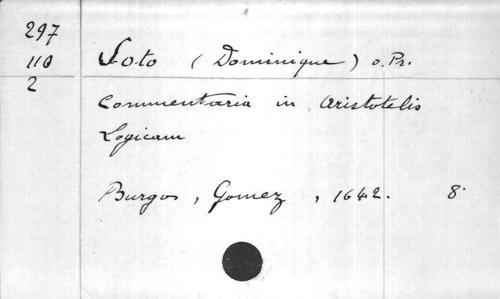 297
110
2
Soto (Dominique) o. Pr.
Commentaria in Aristotelis
Logicam
Burgos, Gomez, 1642. 8°